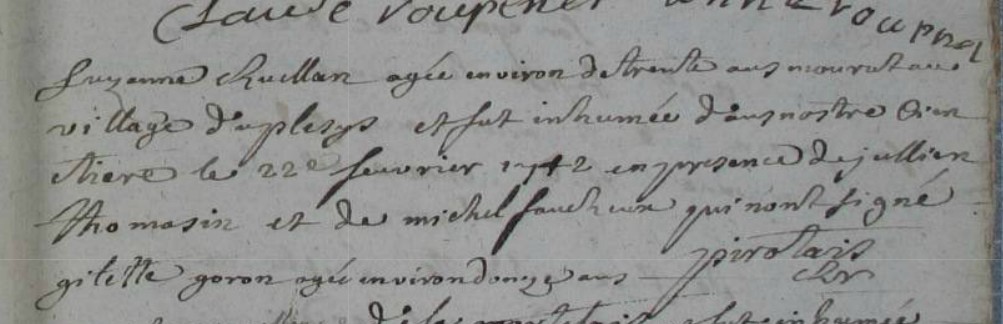 roupnel
Suzanne Chuellan agée environ de trente ans mourut au
village duplesys et fut inhumée dans nostre Cim
tiere le 22e feuvrier 1742 en presence de jullien
thomasin et de michel faucheux qui nont signé
pirotais
gilette goron agée environ donze ans
de la